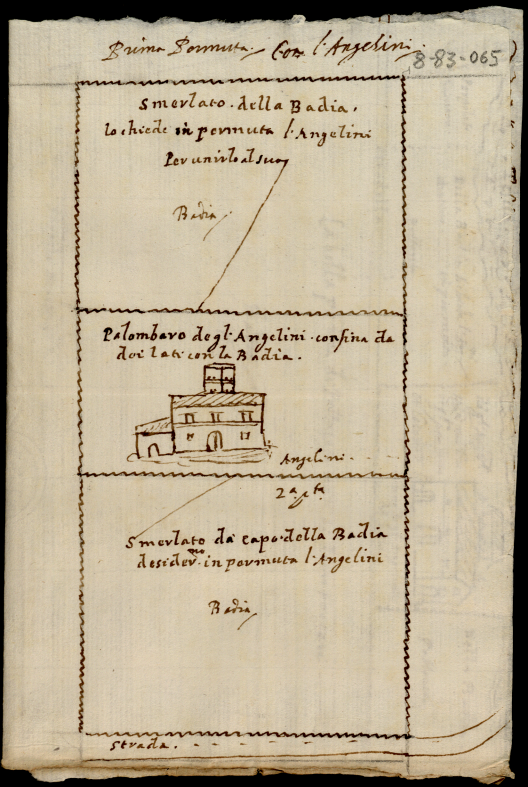 Prima Permuta. Con l'Angelini.
8-83-065
Smerlato della Badia.
lo chiede in permuta l'Angelini
Per unirlo al suo
Badia
Palombaro degl'Angelini confina da
doi lati con la Badia.
Angelini
2.a
Smerlato da capo della Badia
desiderno in permuta l'Angelini
Badia
Strada.